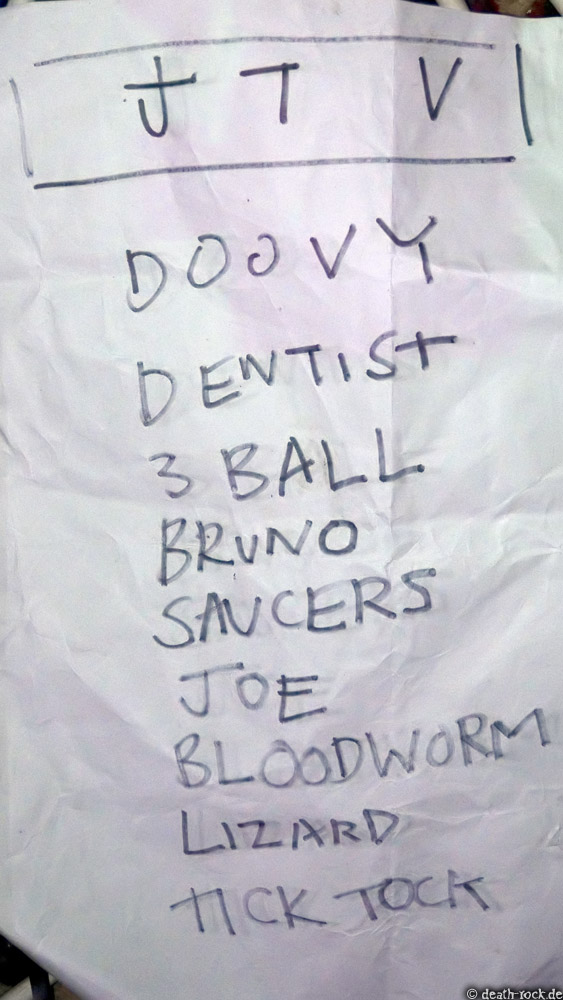 J T V
DOOVY
DENTIST
3 BALL
BRUNO
SAUCERS
JOE
BLOODWORM
LIZARD
TICK TOCK
© death-rock.de